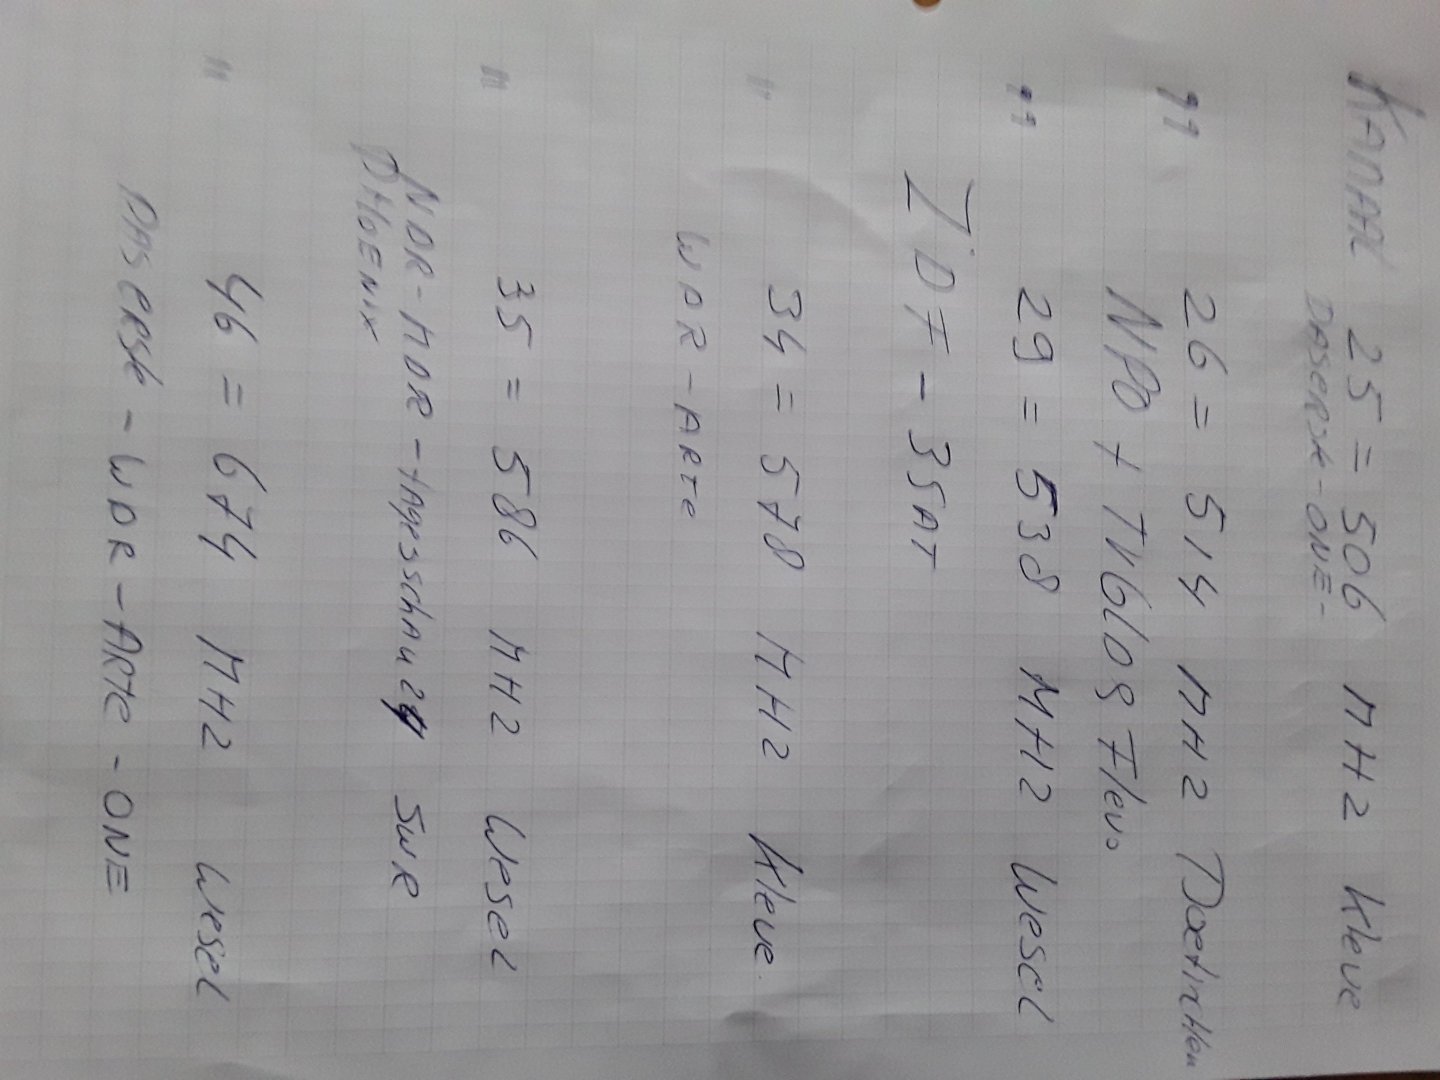 KANAAL 25 = 506 MHZ Kleve
DASERSte - ONE -
" 26 = 514 MHZ Doetinchem
NPO + TV Glos Flevo
" 29 = 538 MHZ Wesel
ZDF - 3SAT
" 34 = 578 MHZ Kleve.
WDR - ARTe
" 35 = 586 MHZ Wesel
NDR - MDR - tAgesschAu 24 SWR
PHOENIX
" 46 = 674 MHZ Wesel
DASERSte - WDR - ARte - ONE